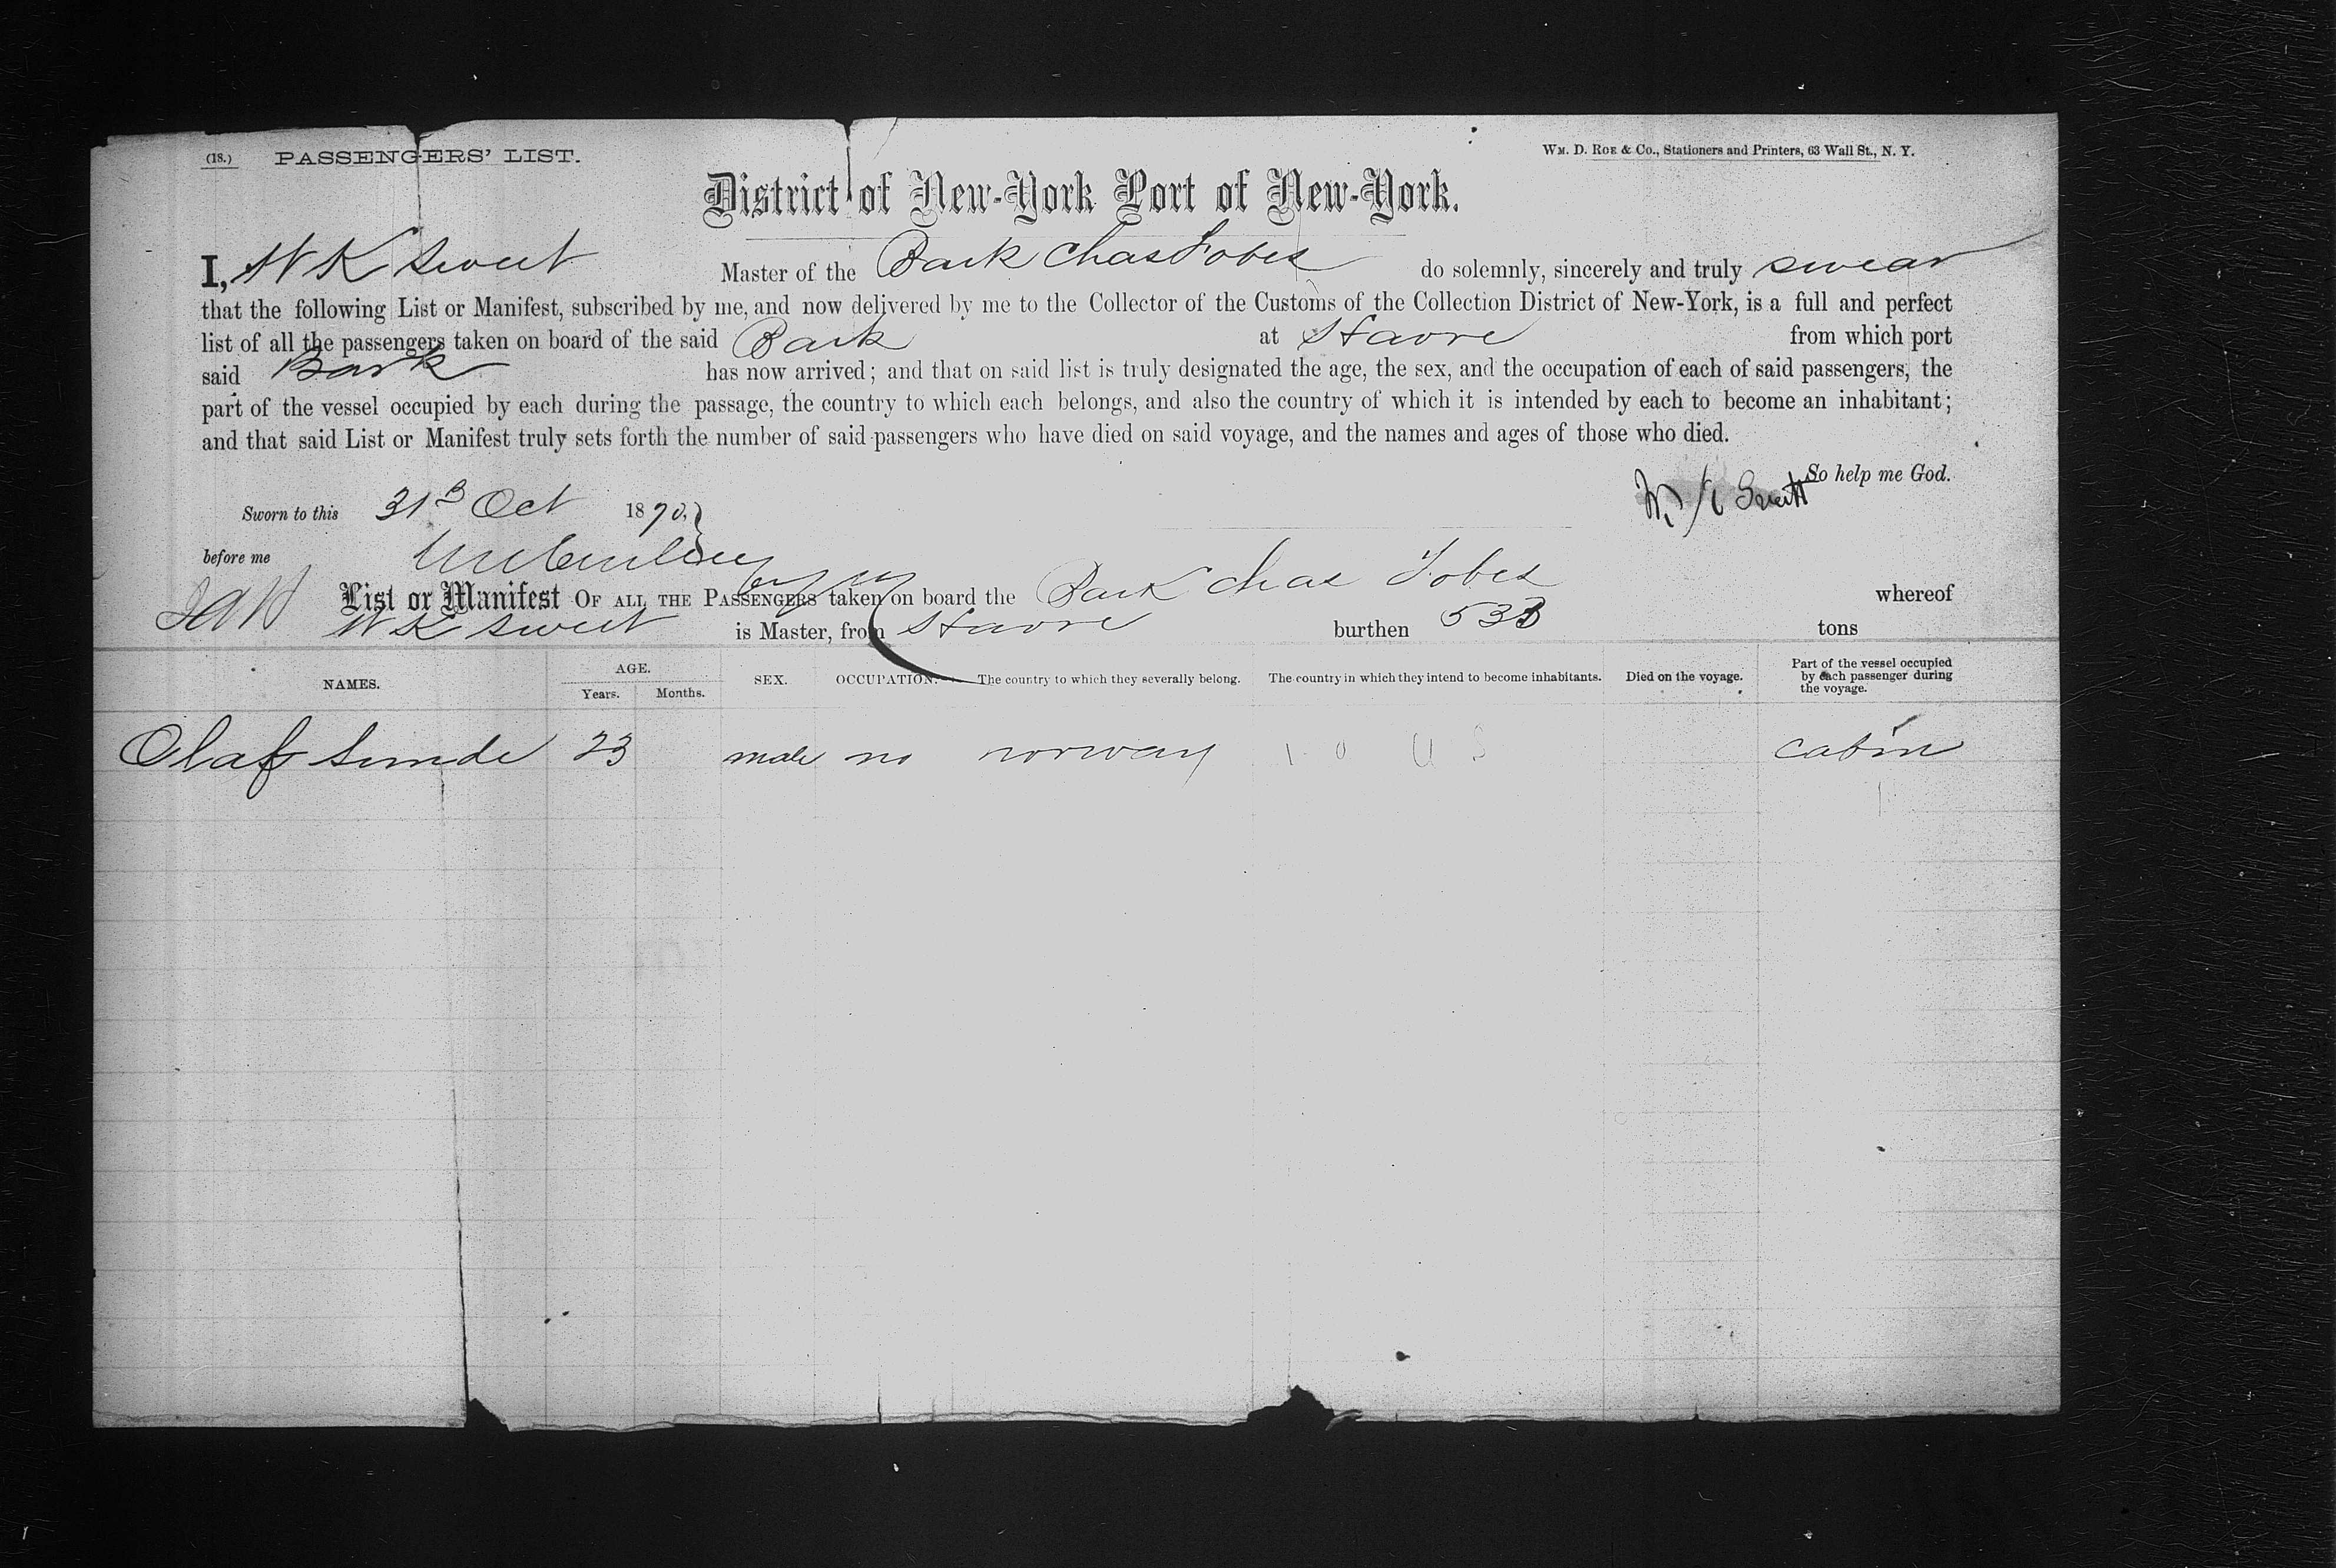 (18.) PASSENGERS' LIST.
WM. D. ROE & CO., Stationers and Printers, 63 Wall St., N. Y.
District of New-York Port of New-York.
I, W K Sweet Master of the Bark Chas Fobes do solemnly, sincerely and truly swear
that the following List or Manifest, subscribed by me, and now delivered by me to the Collector of the Customs of the Collection District of New-York, is a full and perfect
list of all the passengers taken on board of the said Bark at Havre from which port
said Bark has now arrived; and that on said list is truly designated the age, the sex, and the occupation of each of said passengers, the
part of the vessel occupied by each during the passage, the country to which each belongs, and also the country of which it is intended by each to become an inhabitant;
and that said List or Manifest truly sets forth the number of said passengers who have died on said voyage, and the names and ages of those who died.
So help me God.
Sworn to this 31 Oct 1870,
before me
List or Manifest OF ALL THE PASSENGERS taken on board the Bark Chas Fobes whereof
W K Sweet is Master, from Havre burthen 533 tons
NAMES. AGE. Years. Months. SEX. OCCUPATION. The country to which they severally belong. The country in which they intend to become inhabitants. Died on the voyage. Part of the vessel occupied by each passenger during the voyage.
Olaf Sunde 23 male no norway U S cabin